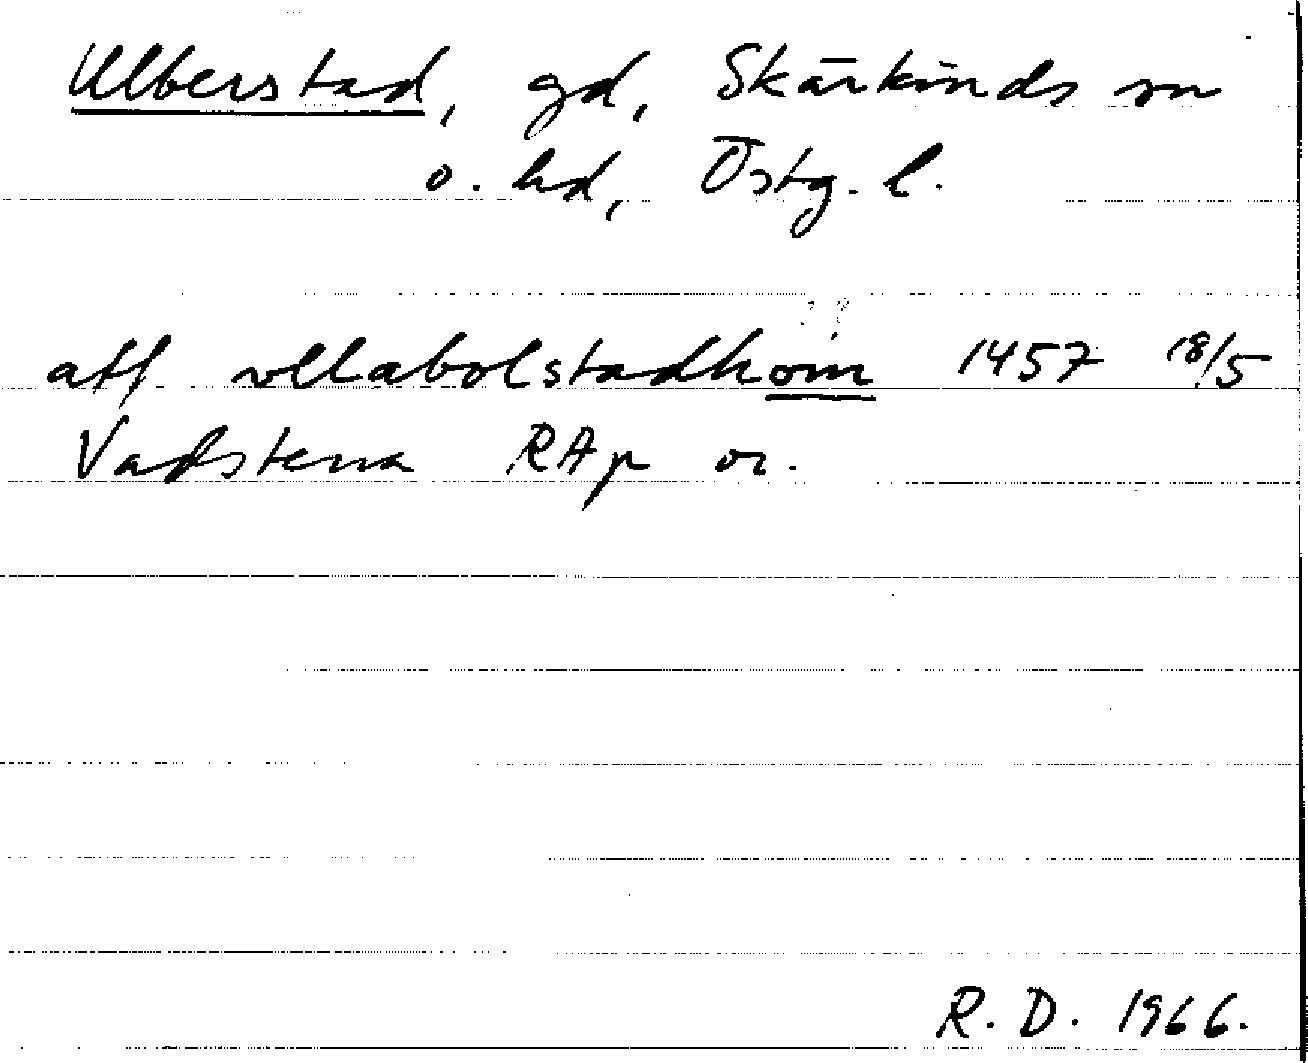 Ulberstad, gd, Skärkinds sn
o. hd, Östg. l.
aff vllabolstadhom 1457 18/5
Vadstena RAp or.
R. D. 1966.